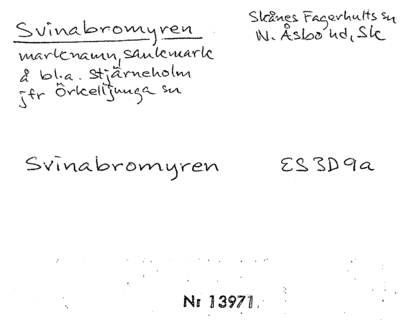 Svinabromyren
marknamn, sankmark
å bl.a. Stjärneholm
jfr Örkelljunga sn
Skånes Fagerhults sn
N. Åsbo hd, Sk
Svinabromyren ES3D9a
Nr 13971.